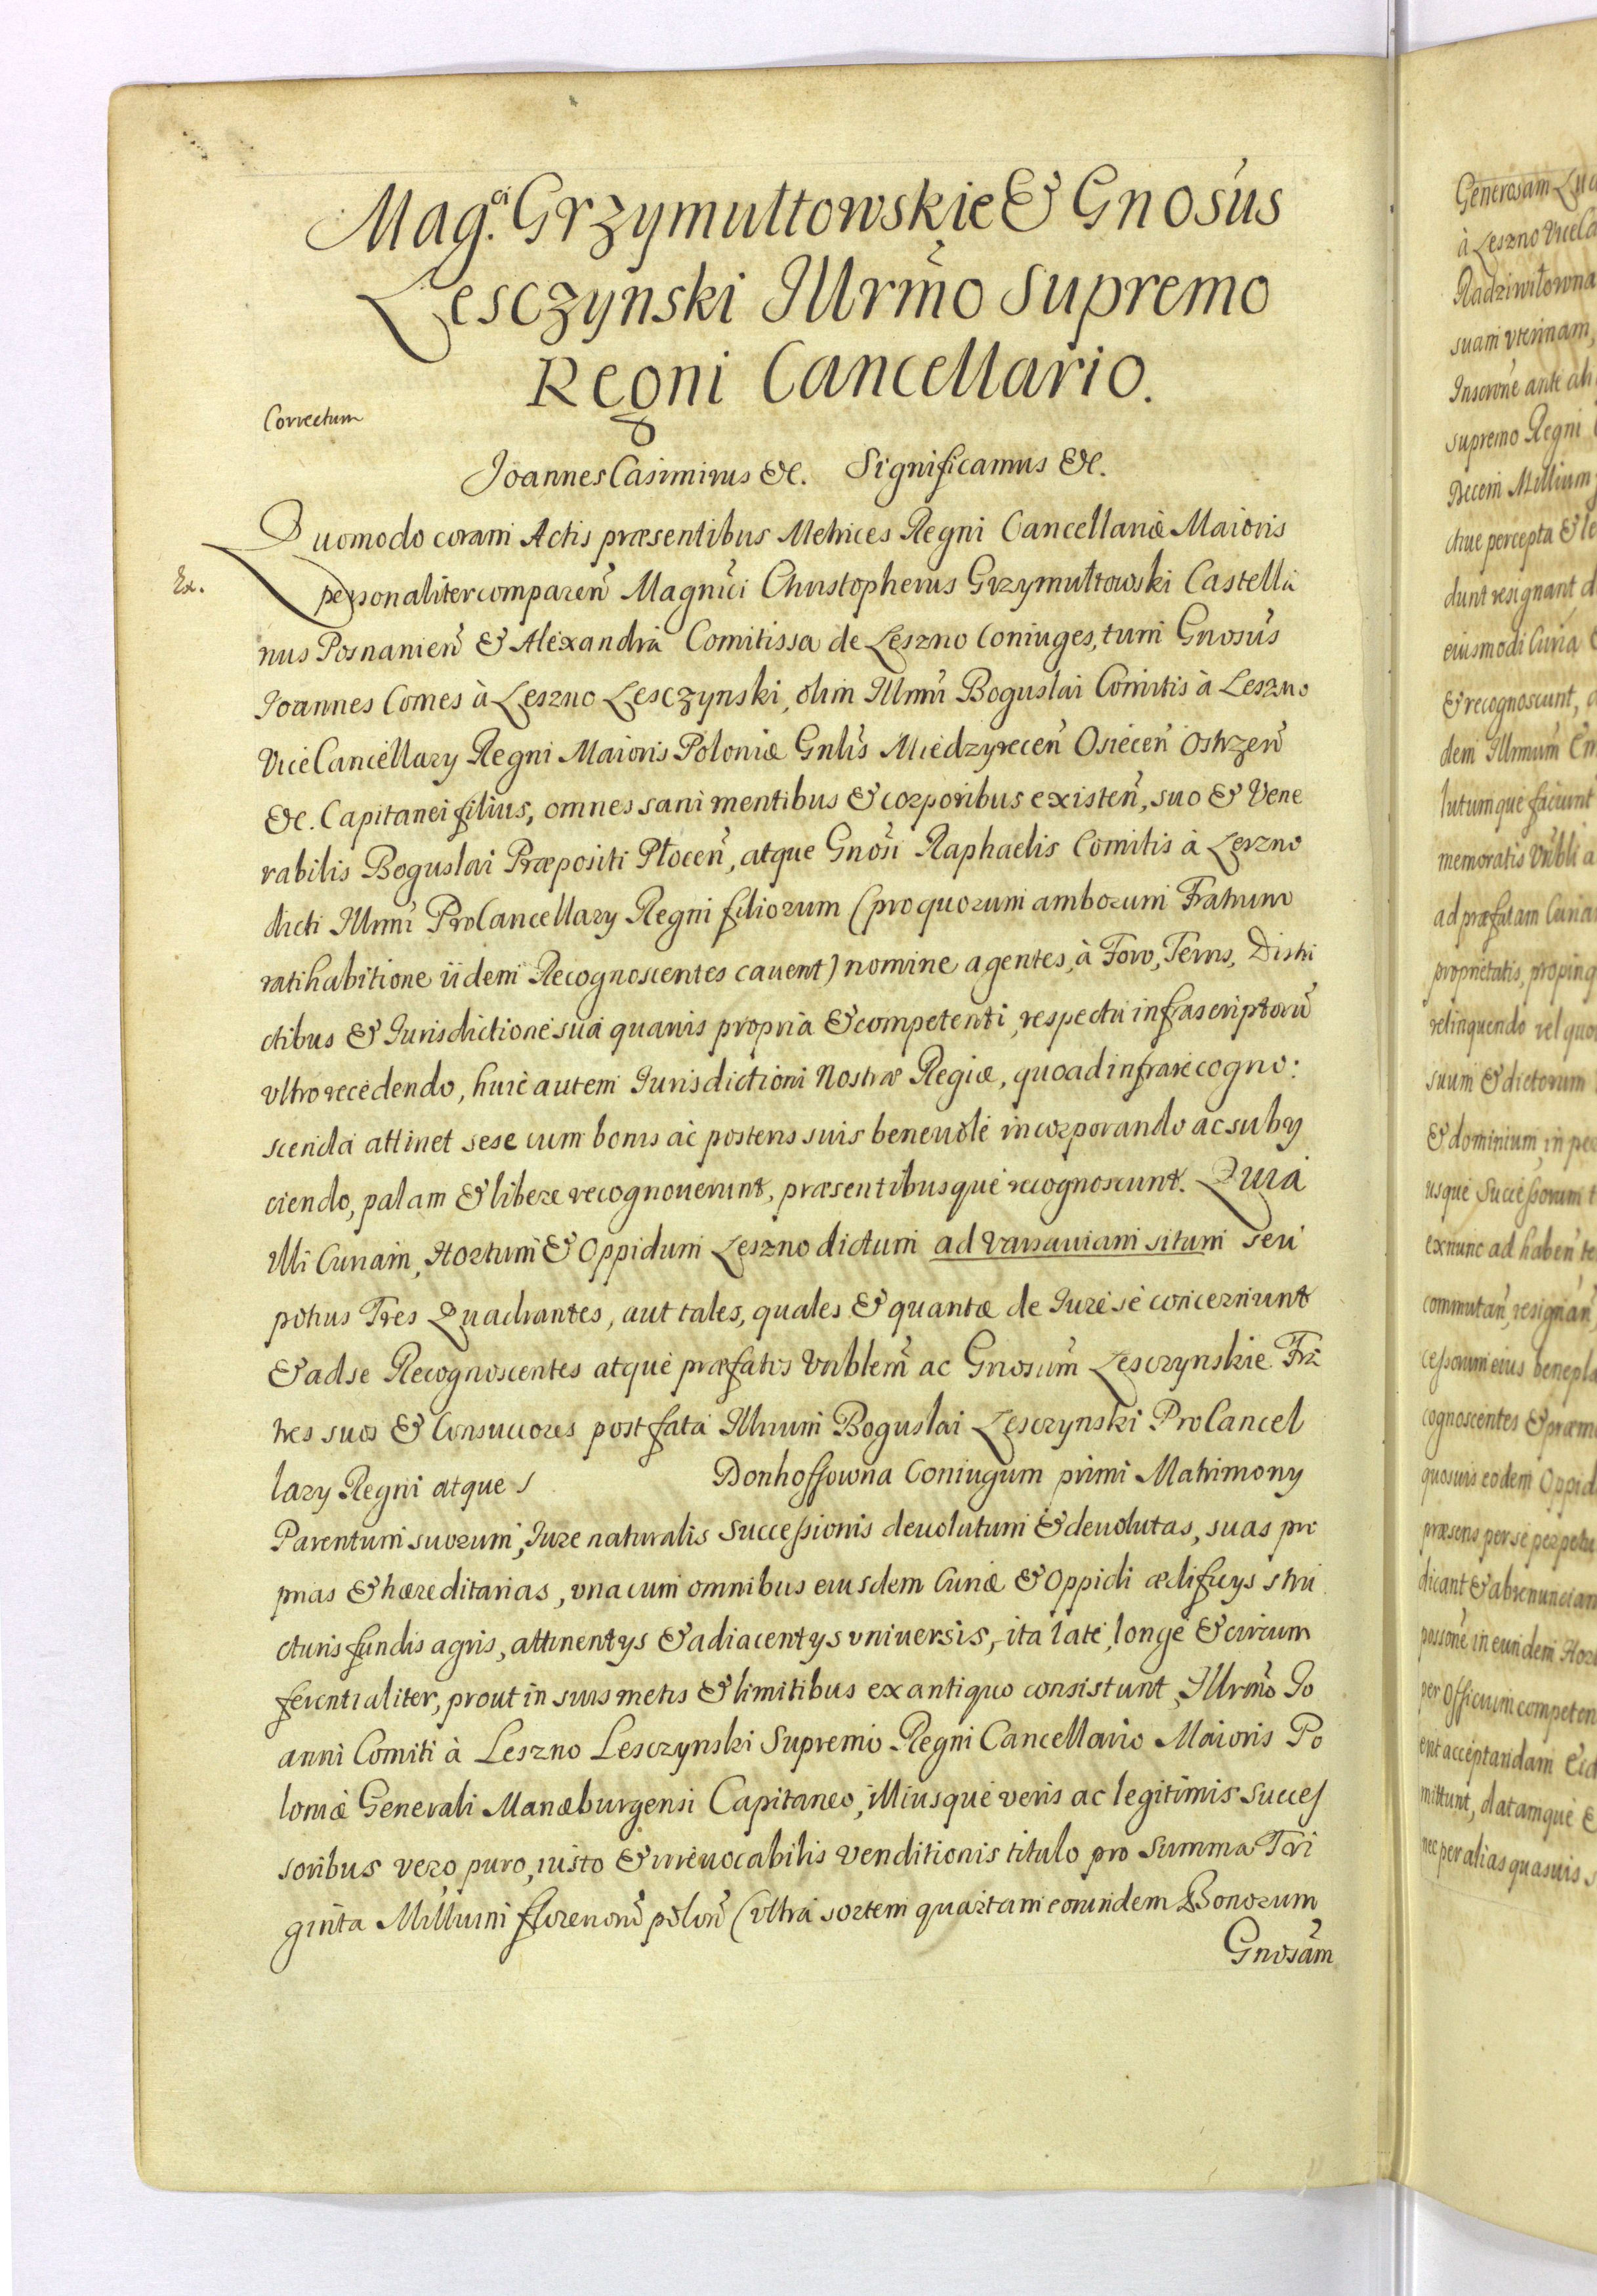 Mag.ci Grzymułtowskie & Gnosus
Lesczynski Illrmo Supremo
Regni Cancellario.
Correctum
Joannes Casimirus &c. Significamus &c.
Ex.
Quomodo coram Actis præsentibus Metrices Regni Cancellariæ Maioris
personaliter comparen Magnici Christopherus Grzymułtowski Castella
nus Posnanien & Alexandra Comitissa de Leszno Coniuges, tum Gnosus
Joannes Comes à Leszno Lesczynski, olim Illmi Boguslai Comitis à Leszno
ViceCancellary Regni Maioris Poloniæ Gnlis Miedzyrecen Osiecen Ostrzen
&c. Capitanei filius, omnes sani mentibus & corporibus existen, suo & Vene
rabilis Boguslai Præpositi Płocen, atque Gnosi Raphaelis Comitis à Leszno
dicti Illmi ProCancellary Regni filiorum (pro quorum amborum Fratrum
ratihabitione iidem Recognoscentes cauent) nomine agentes, à Foro, Terris, Distri
ctibus & Jurisdictione sua quauis propria & competenti, respectu infrascriptoru
vltro recedendo, huic autem Jurisdictioni Nostræ Regiæ, quoad infra recogno:
scenda attinet sese cum bonis ac posteris suis beneuole incorporando ac suby
ciendo, palam & libere recognouerunt, præsentibusque recognoscunt. Quia
illi Curiam, Hortum & Oppidum Leszno dictum ad Varsauiam situm seu
potius Tres Quadrantes, aut tales, quales & quantæ de Jure se concernunt
& ad se Recognoscentes atque præfatos Vnblem ac Gnosum Lesczynskie Fra
tres suos & Consuccores post fata Illmum Boguslai Lesczynski ProCancel
lary Regni atque Donhoffowna Coniugum primi Matrimony
Parentum suorum, Jure naturalis Successionis deuolutum & deuolutas, suas pro
prias & hæreditarias, vna cum omnibus eiusdem Curiæ & Oppidi ædificys stru
cturis fundis agris, attinentys & adiacentys vniuersis, ita late, longe & circum
ferentialiter, prout in suis metis & limitibus ex antiquo consistunt, Illrmo Jo
anni Comiti à Leszno Lesczynski Supremo Regni Cancellario Maioris Po
loniæ Generali Manæburgensi Capitaneo, illiusque veris ac legitimis succes
soribus vero puro, iusto & irreuocabilis venditionis titulo pro Summa Tri
ginta Millium florenoru polon (vltra sortem quartam eorundem Bonorum
Gnosam
Generosam
à Leszno
Radziwiłowna
suam vterinam,
Inscrone ante
supremo Regni
Decem Millium
ctiue percepta &
dunt resignant
eiusmodi Curia
& recognoscunt,
dem Illmum
lutumque faciunt
memoratis Vnbli
ad præfatam
proprietatis,
relinquendo vel
suum & dictorum
& dominium, in
usque Successorum
exnunc ad haben
commutan, resignan,
cessorum eius
cognoscentes &
quosuis eodem
præsens per se
dicant & abrenuncian
possone in eundem
per Officium
erit acceptandam
mittunt, datamque &
nec per alias quasuis